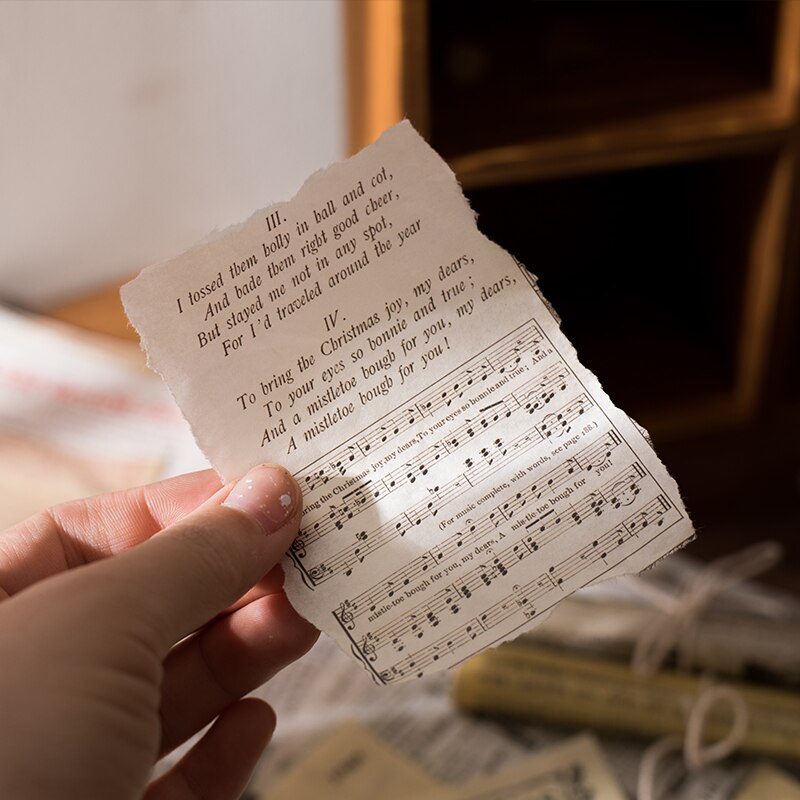 III.
I tossed them holly in hall and cot,
And bade them right good cheer,
But stayed me not in any spot,
For I'd traveled around the year
IV.
To bring the Christmas joy, my dears,
To your eyes so bonnie and true;
And a mistletoe bough for you, my dears,
A mistletoe bough for you!
bring the Christmas joy, my dears, To your eyes so bonnie and true; And a
(For music complete, with words, see page 188.)
mistle-toe bough for you, my dears, A mis-tle-toe bough for you!